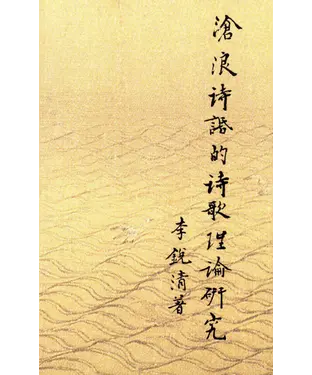 滄浪诗話的诗歌理論研究
李銳清著